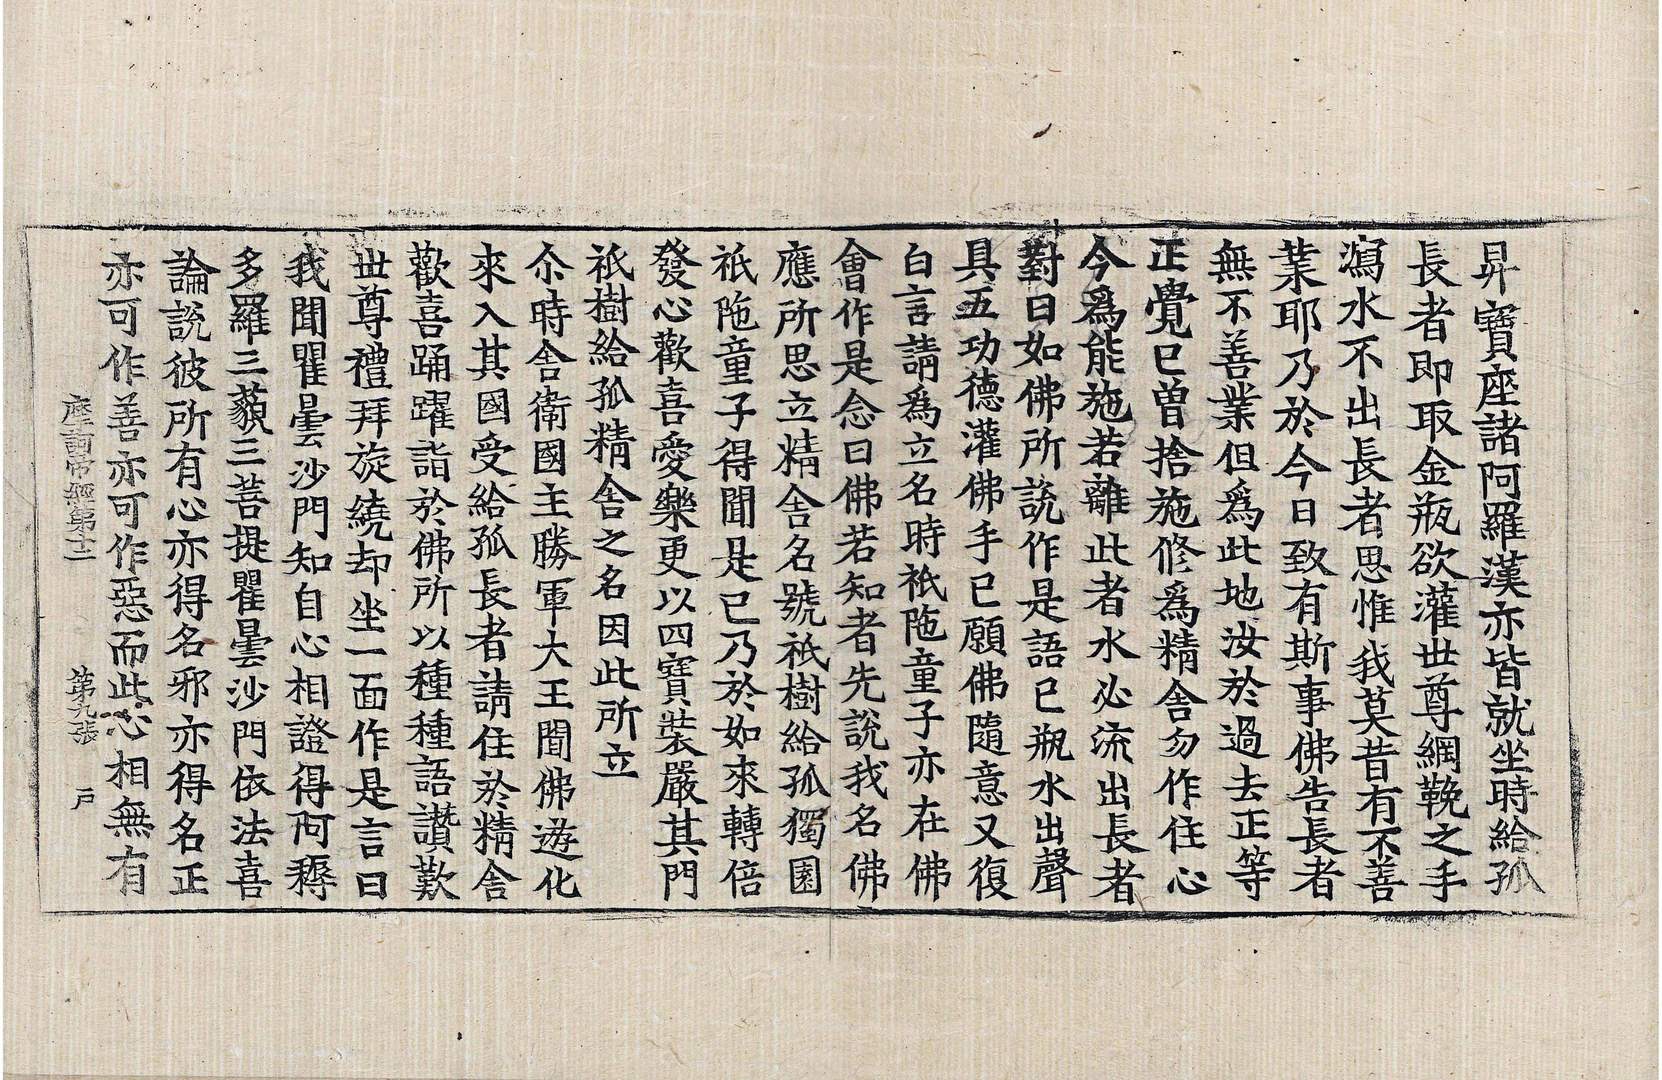 昇寶座諸阿羅漢亦皆就坐時給孤
長者即取金瓶欲灌世尊網鞔之手
瀉水不出長者思惟我莫昔有不善
業耶乃於今日致有斯事佛告長者
無不善業但爲此地汝於過去正等
正覺已曾捨施修爲精舍勿作住心
今爲能施若離此者水必流出長者
對曰如佛所說作是語已瓶水出聲
具五功德灌佛手已願佛隨意又復
白言請爲立名時祇陁童子亦在佛
會作是念曰佛若知者先說我名佛
應所思立精舍名號祇樹給孤獨園
祇陁童子得聞是已乃於如來轉倍
發心歡喜愛樂更以四寶裝嚴其門
祇樹給孤精舍之名因此所立
尒時舍衛國主勝軍大王聞佛遊化
來入其國受給孤長者請住於精舍
歡喜踊躍詣於佛所以種種語讚歎
世尊禮拜旋繞却坐一面作是言曰
我聞瞿曇沙門知自心相證得阿耨
多羅三藐三菩提瞿曇沙門依法喜
論說彼所有心亦得名邪亦得名正
亦可作善亦可作惡而此心相無有
帝經第十二 第九張 戶